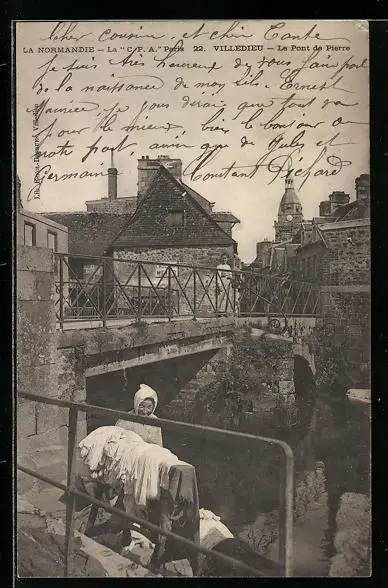 cher cousin et cher Tante
LA NORMANDIE — La "C.P.A." Paris 22. VILLEDIEU — Le Pont de Pierre
je suis très heureux de vous faire part
de la naissance de mon fils Ernest
Maurice je vous dirais que tout va
pour le mieux bien le bonjour de
notre part ainsi que de Jules et
Germain Constant Pichard